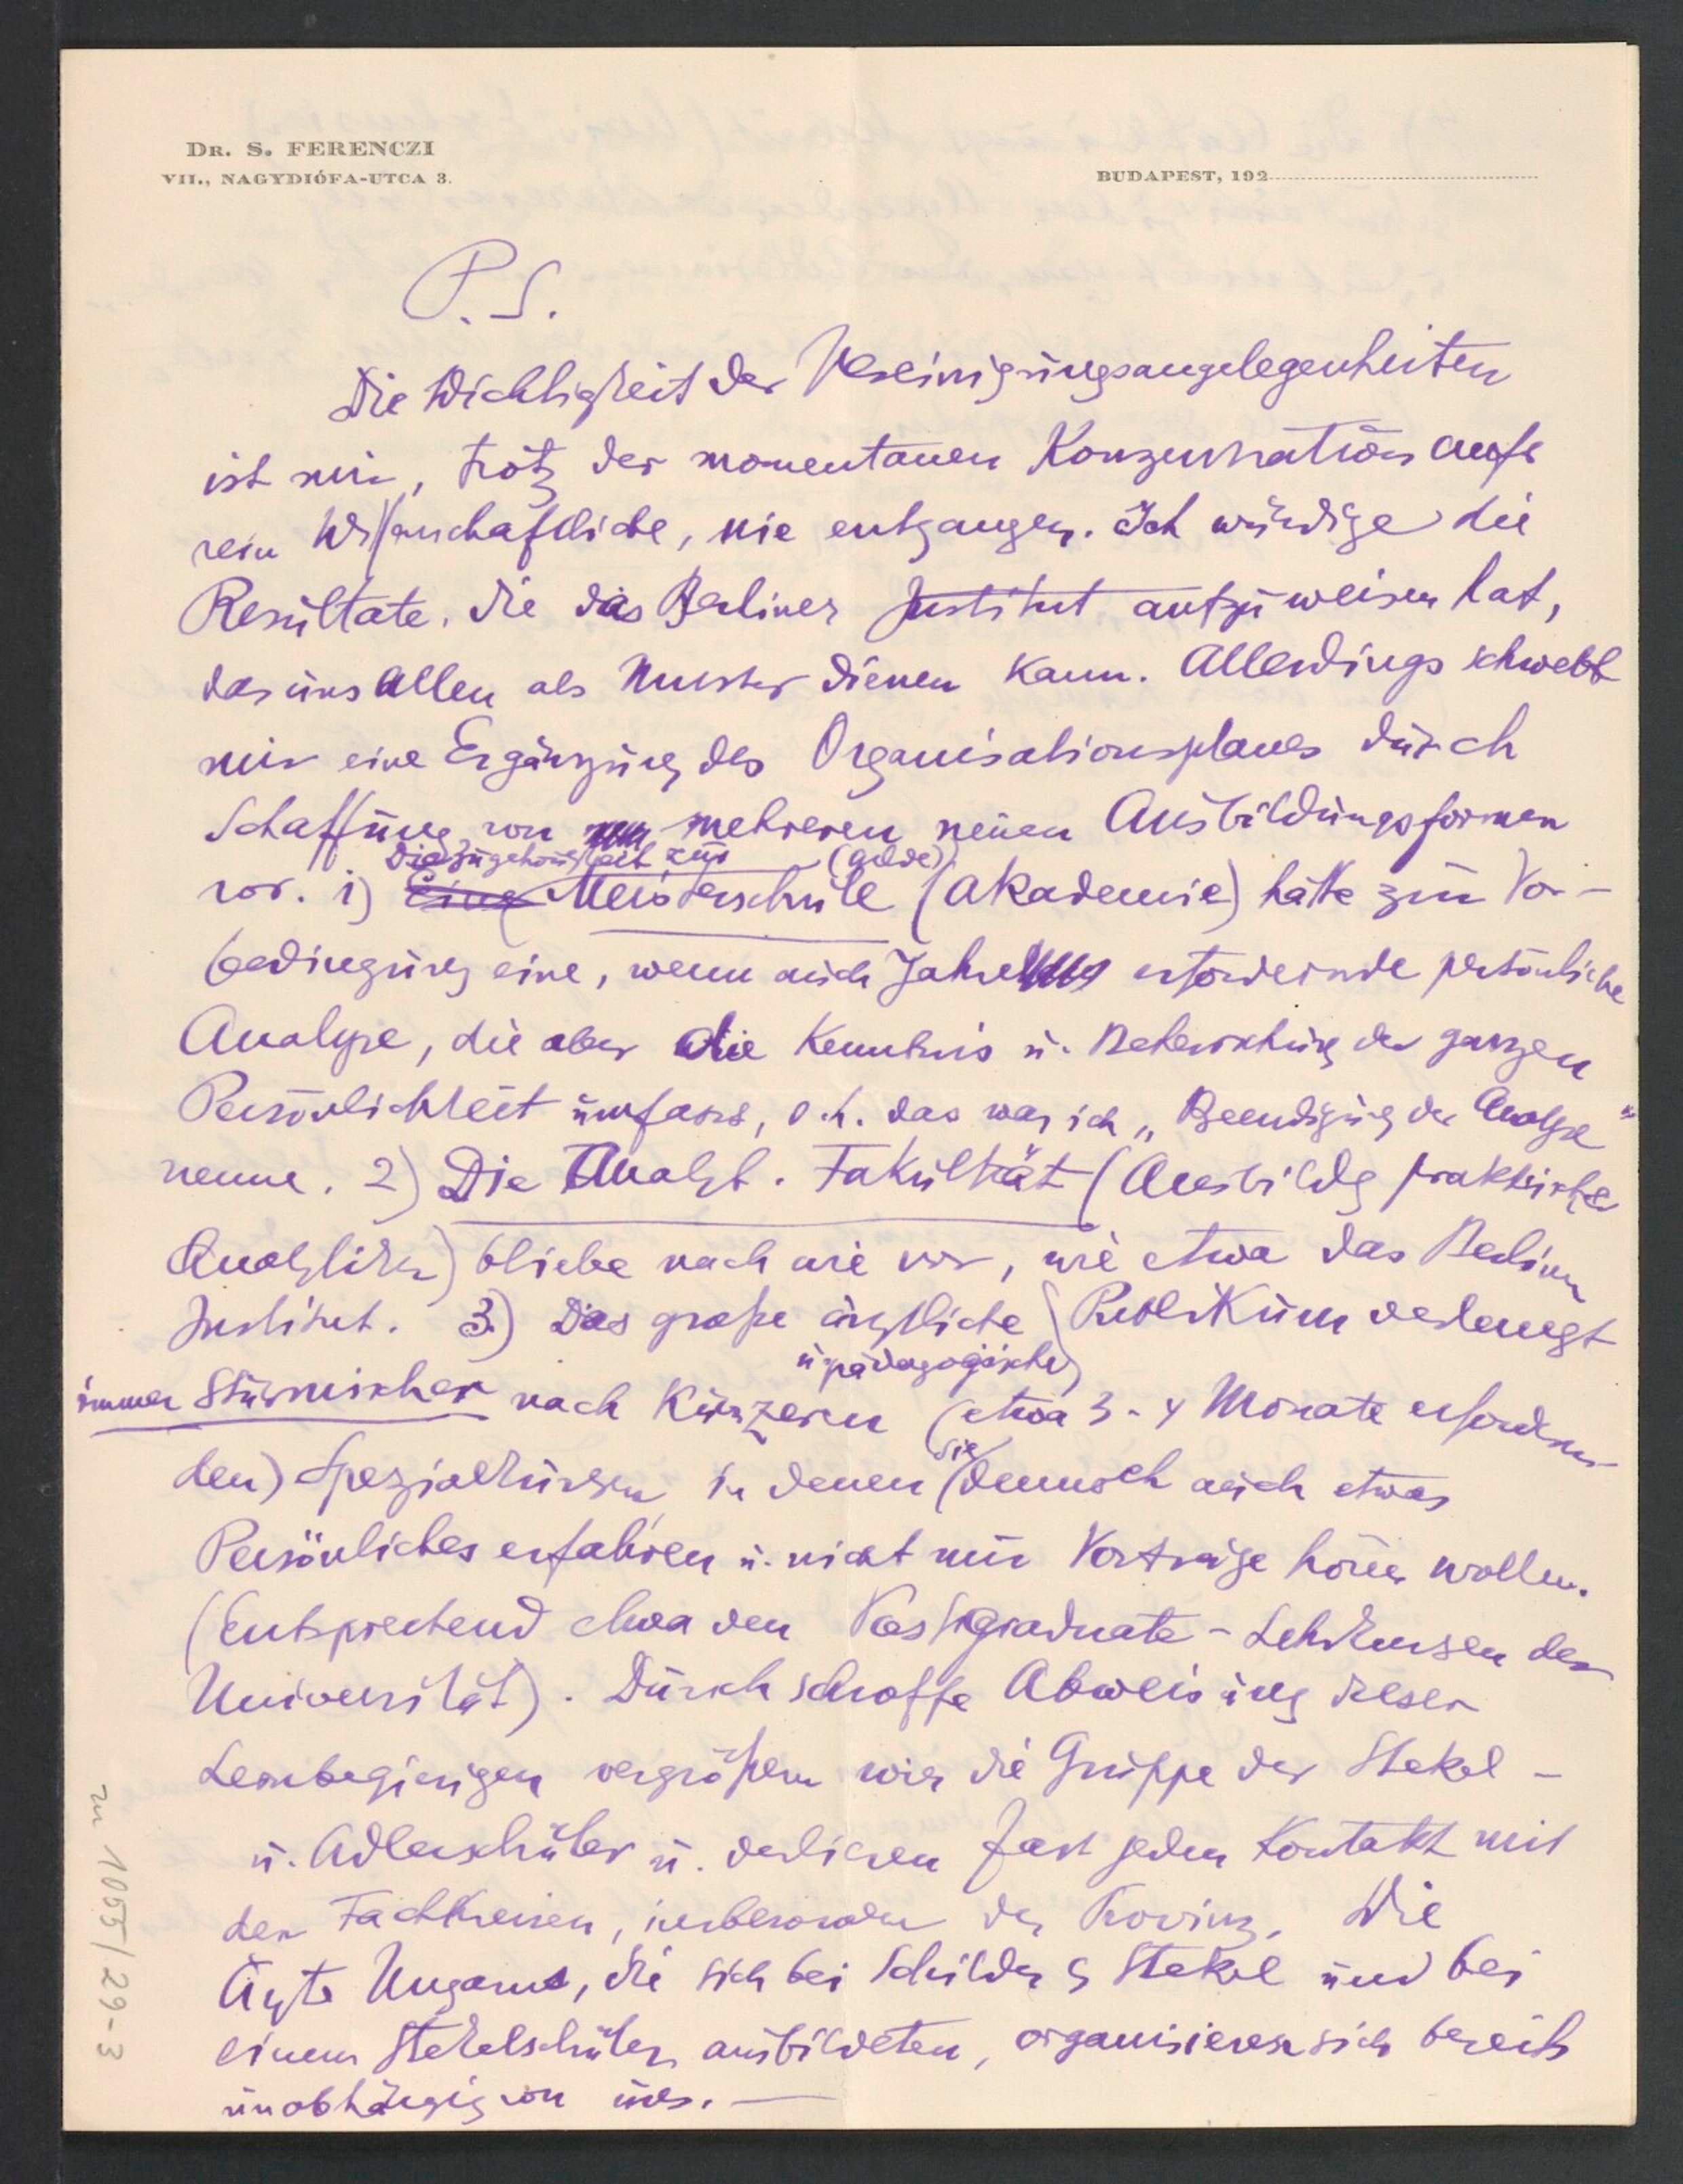 DR. S. FERENCZI
VII., NAGYDIÓFA-UTCA 3.
BUDAPEST, 192
P.S.
Die Wichtigkeit der Vereinigungsangelegenheiten
ist mir, trotz der momentanen Konzentration aufs
rein Wissenschaftliche, nie entgangen. Ich würdige die
Resultate, die das Berliner Institut aufzuweisen hat,
das uns Allen als Muster dienen kann. Allerdings schwebt
mir eine Ergänzung des Organisationsplanes durch
Schaffung von mehreren neuen Ausbildungsformen
Die Zugehörigkeit zur (Gilde)
vor. 1) Eine Meisterschule (Akademie) hätte zur Vor-
bedingung eine, wenn auch Jahre erfordernde persönliche
Analyse, die aber die Kenntnis u. Beherrschung der ganzen
Persönlichkeit umfasst, d.h. das was ich „Beendigung der Analyse"
nenne. 2) Die Analyt. Fakultät (Ausbildg praktischer
Analytiker) bliebe nach wie vor, wie etwa das Berliner
Institut. 3) Das große ärztliche Publikum verlangt
u. pädagogische
immer stürmischer nach kürzeren (etwa 3-4 Monate erfordern-
den) Spezialkursen in denen sie dennoch auch etwas
Persönliches erfahren u. nicht nur Vorträge hören wollen.
(Entsprechend etwa den Postgraduate-Lehrkursen der
Universität). Durch schroffe Abweisung dieser
Lernbegierigen vergrößern wir die Gruppe der Stekel-
u. Adlerschüler u. verlieren fast jeden Kontakt mit
den Fachkreisen, insbesondere der Provinz. Die
Ärzte Ungarns, die sich bei Schilder, Stekel und bei
einem Stekelschüler ausbildeten, organisieren sich bereits
unabhängig von uns. —
zu 1055/29-3